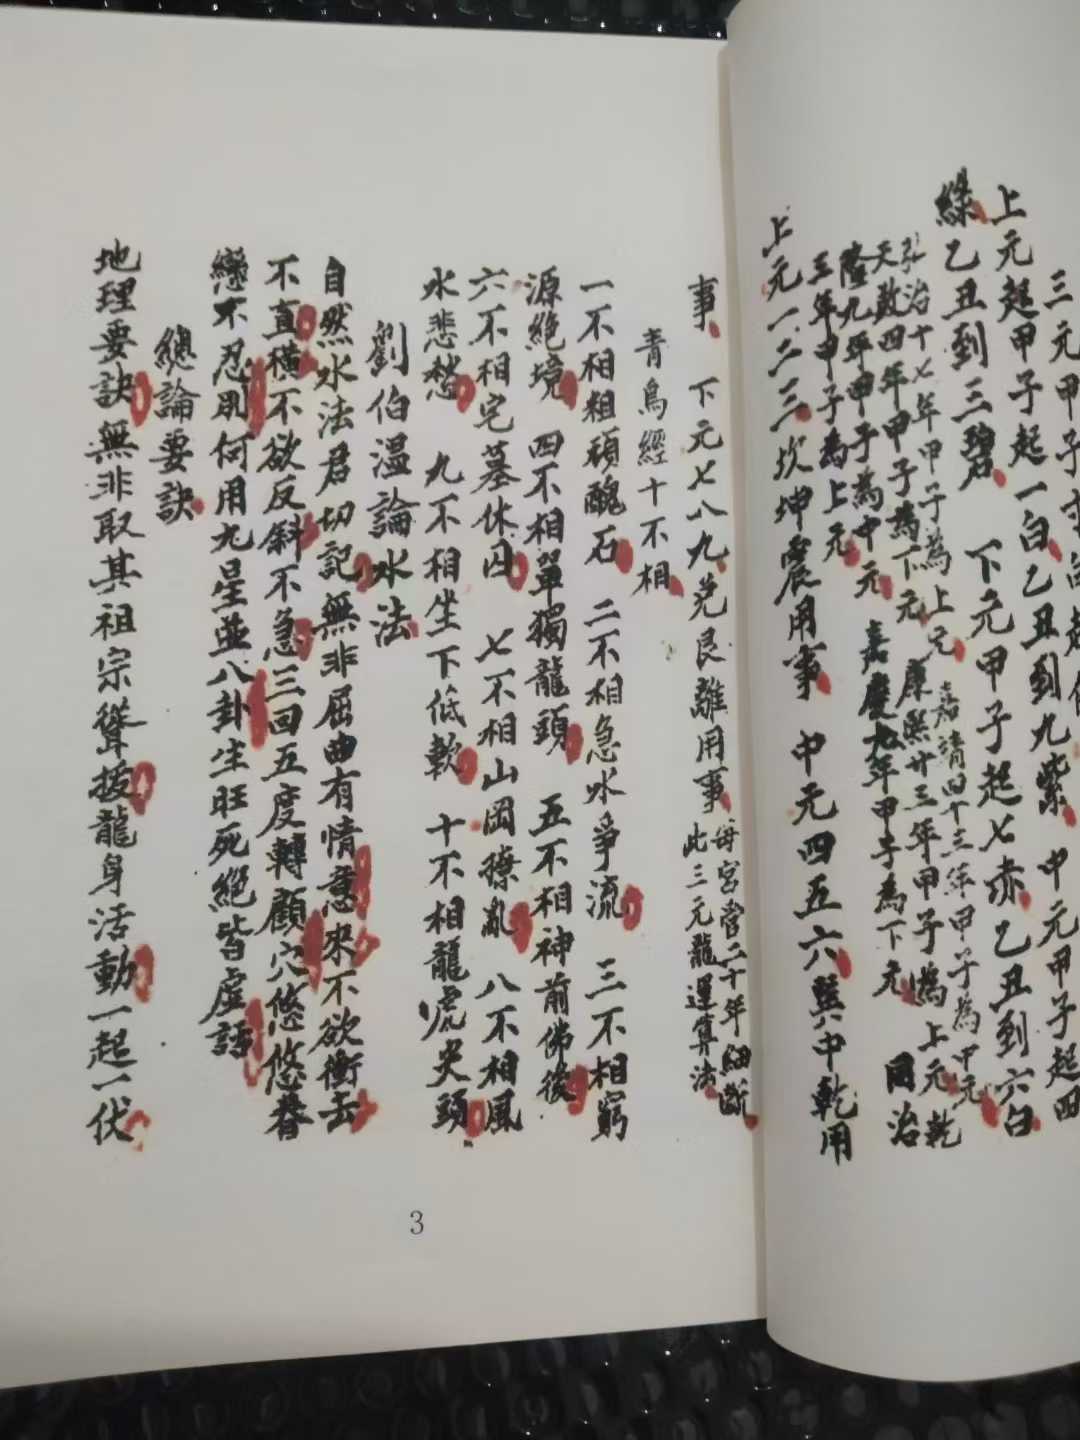 三元甲子
上元起甲子起一白乙丑到九紫 中元甲子起四
綠乙丑到三碧 下元甲子起七赤乙丑到六白
弘治十七年甲子為上元 嘉靖四十三年甲子為中元
天啟四年甲子為下元 康熙廿三年甲子為上元 乾
隆九年甲子為中元 嘉慶九年甲子為下元 同治
三年甲子為上元
上元一二三坎坤震用事 中元四五六巽中乾用
事 下元七八九兌艮離用事 每宮管二十年細斷
此三元龍運算法
青烏經十不相
一不相粗頑醜石 二不相急水爭流 三不相窮
源絕境 四不相單獨龍頭 五不相神前佛後
六不相宅墓休囚 七不相山岡撩亂 八不相風
水悲愁 九不相坐下低軟 十不相龍虎尖頭
劉伯溫論水法
自然水法君切記無非屈曲有情意來不欲衝去
不直橫不欲反斜不急三回五度轉顧穴悠悠眷
戀不忍別何用九星並八卦生旺死絕皆虛話
總論要訣
地理要訣無非取其祖宗聳拔龍身活動一起一伏
3